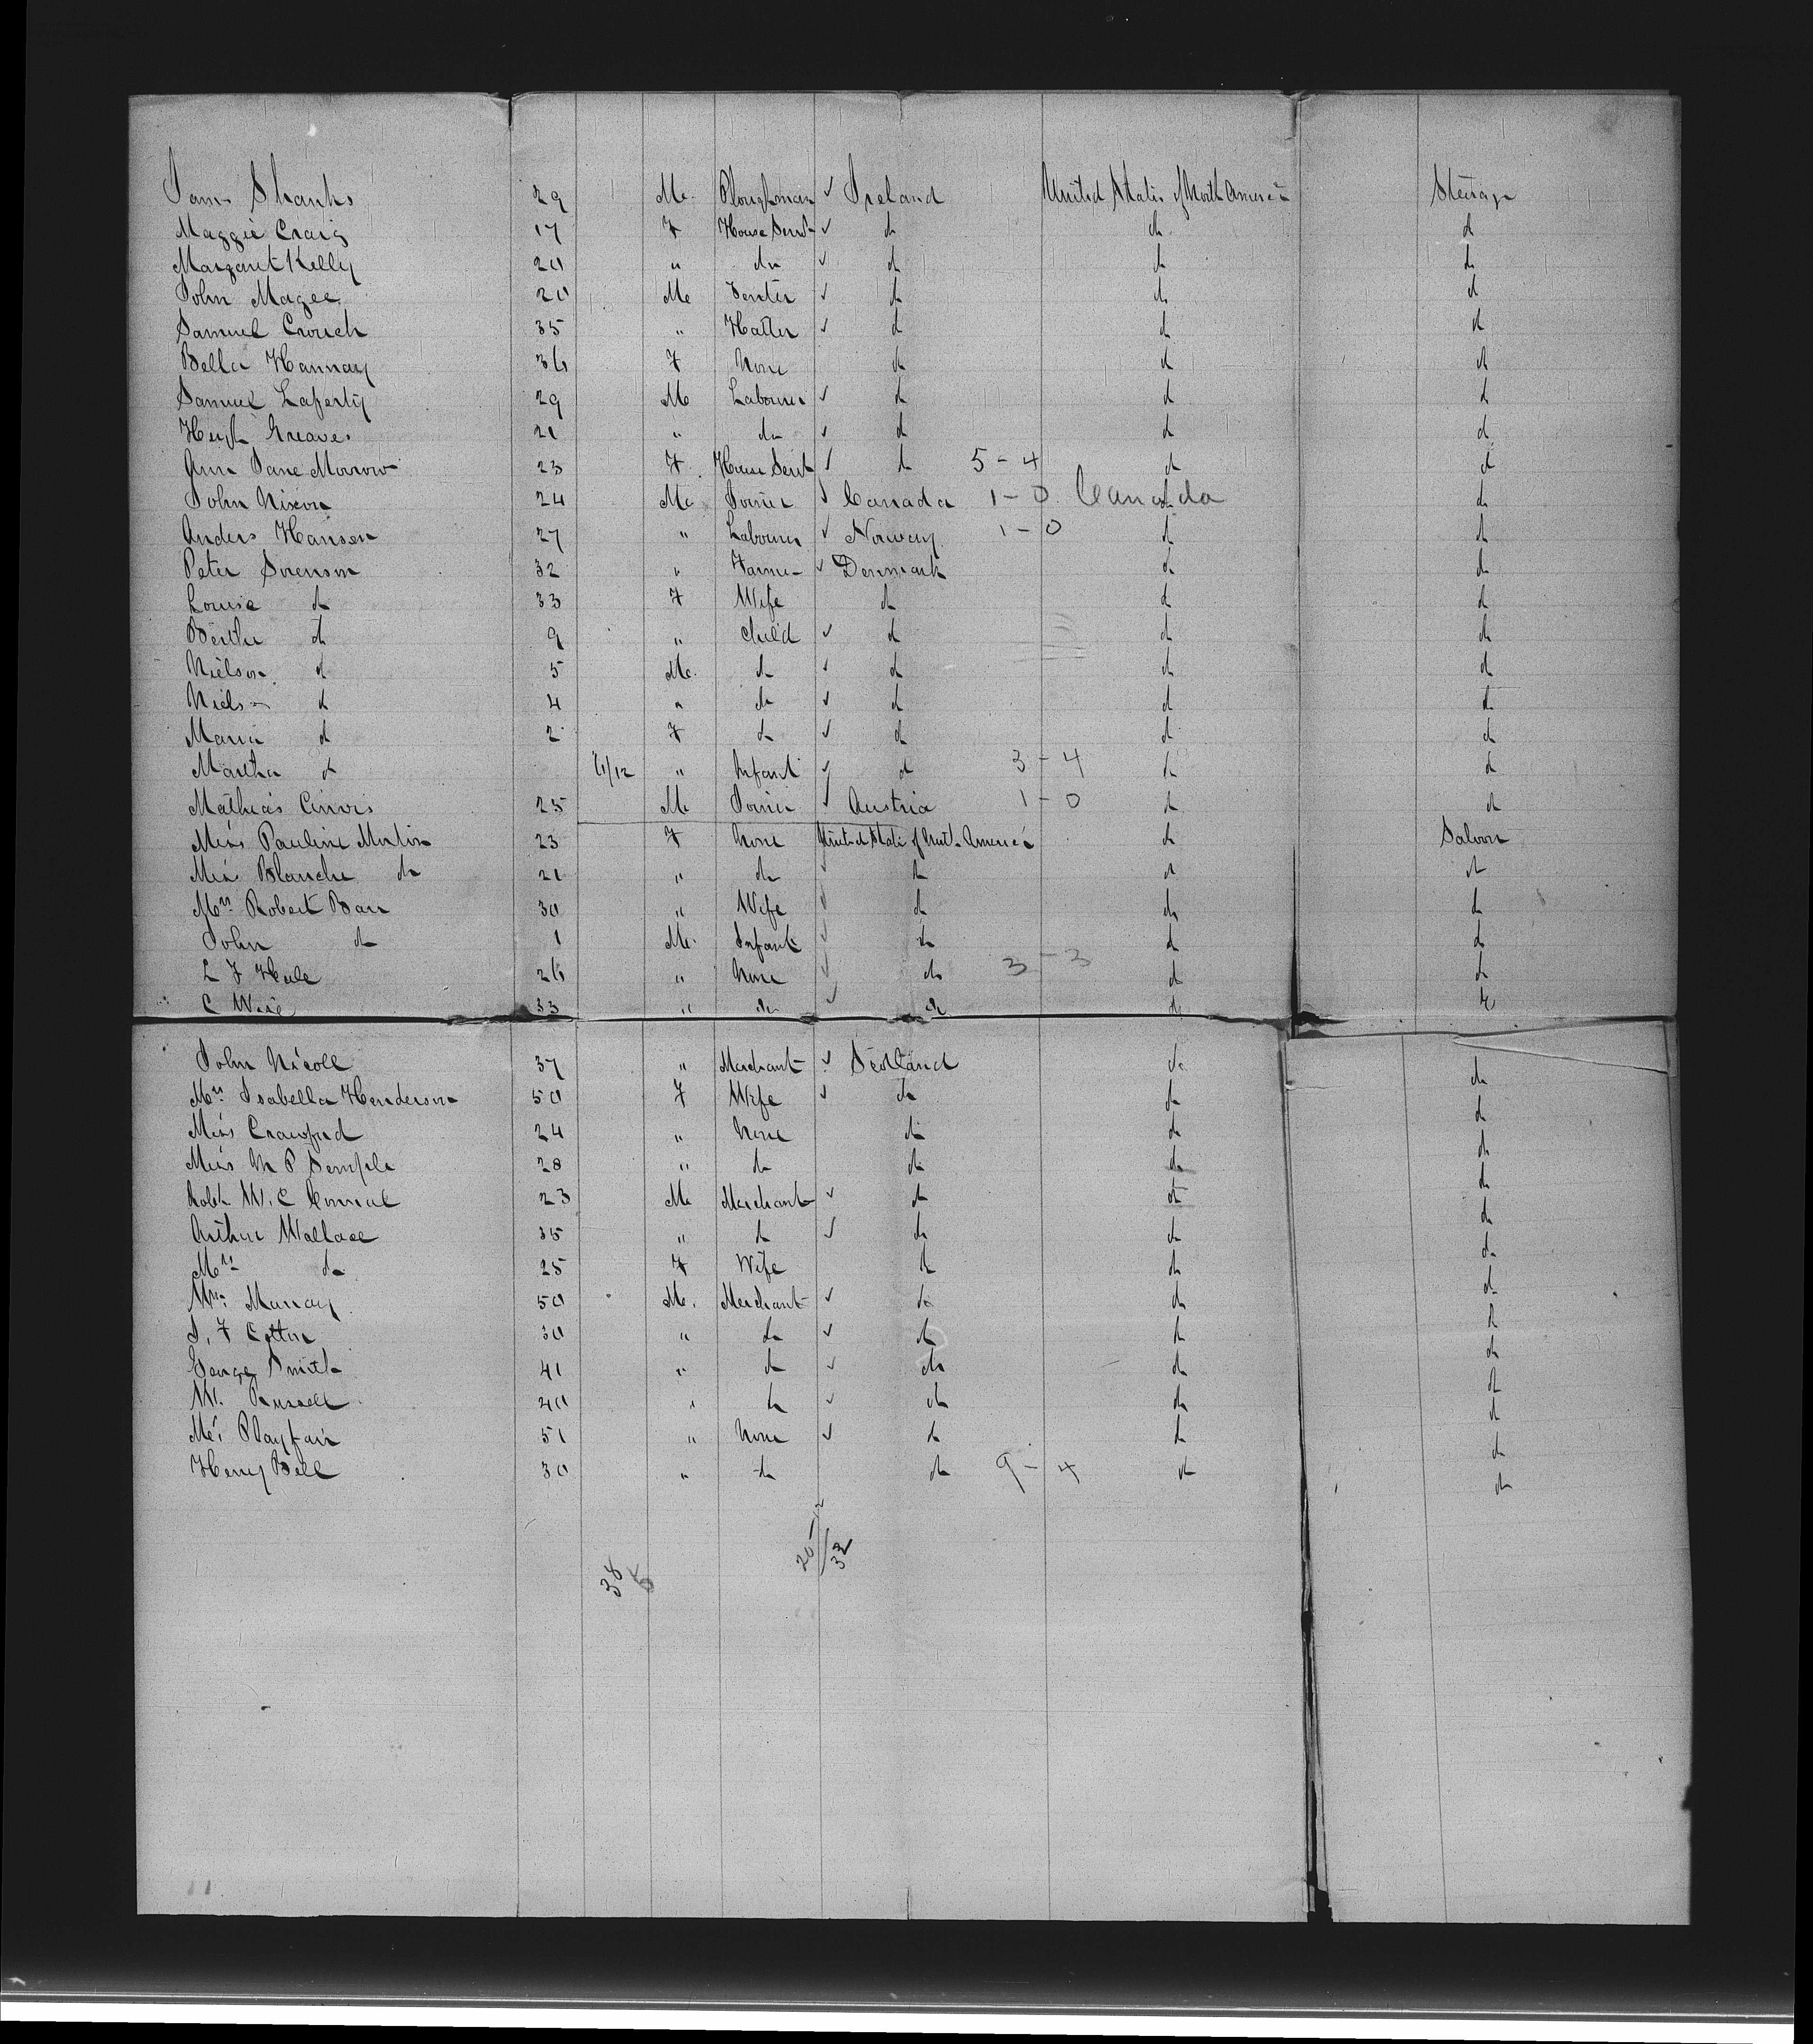 Jam. Shanks 29 M. Ploughman ✓ Ireland United States of North America Steerage
Maggie Craig 17 F House Servt ✓ do do do
Margaret Kelly 20 " do ✓ do do do
John Magee 20 M. ✓ do do do
Samuel Crouch 35 " Hatter ✓ do do do
Bella Hannay 36 F None do do do
Samuel Laferty 29 M Labourer ✓ do do do
Hugh Greaves 21 " do ✓ do do do
Ann Jane Morrow 23 F House Servt ✓ do 5-4 do do
John Nixon 24 M. Joiner ✓ Canada 1-0 Canada do do
Anders Hansen 27 " Labourer ✓ Norway 1-0 do do
Peter Sorenson 32 " Farmer ✓ Denmark do do
Louise do 33 F Wife do do do
Berthe do 9 " Child ✓ do do do
Nielson do 5 M. do ✓ do do do
Niels do 4 " do ✓ do do do
Maria do 2 F do ✓ do do do
Martha do 6/12 " Infant ✓ do 3-4 do do
Mathias 25 M. Joiner ✓ Austria 1-0 do do
Miss Pauline 23 F None United States of North America do Saloon
Miss Blanche do 21 " do ✓ do do do
Mrs Robert Barr 30 " Wife ✓ do do do
John do 1 M. Infant ✓ do do do
L F 26 " None ✓ do 3-3 do do
C 33 " do ✓ do do do
John Nicoll 37 " Merchant ✓ Scotland do do
Mrs Isabella Henderson 50 F Wife ✓ do do do
Miss Crawford 24 " None do do do
Miss M P Semple 28 " do do do do
Robt 23 M. Merchant ✓ do do do
Arthur Wallace 35 " do ✓ do do do
Mrs do 25 F Wife do do do
Murray 50 M. Merchant ✓ do do do
J. F Cotton 30 " do ✓ do do do
George Smith 41 " do ✓ do do do
W. Russell 40 " do ✓ do do do
Mr. Playfair 51 " None ✓ do do do
Henry Bell 30 " do do 9-4 do do
20-12
32
38